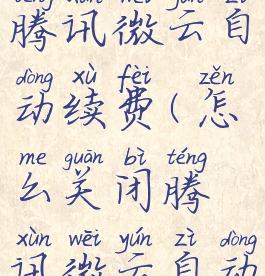 téng xùn wēi yún zì
腾讯微云自
dòng xù fèi zěn
动续费(怎
me guān bì téng
么关闭腾
xùn wēi yún zì dòng
讯微云自动